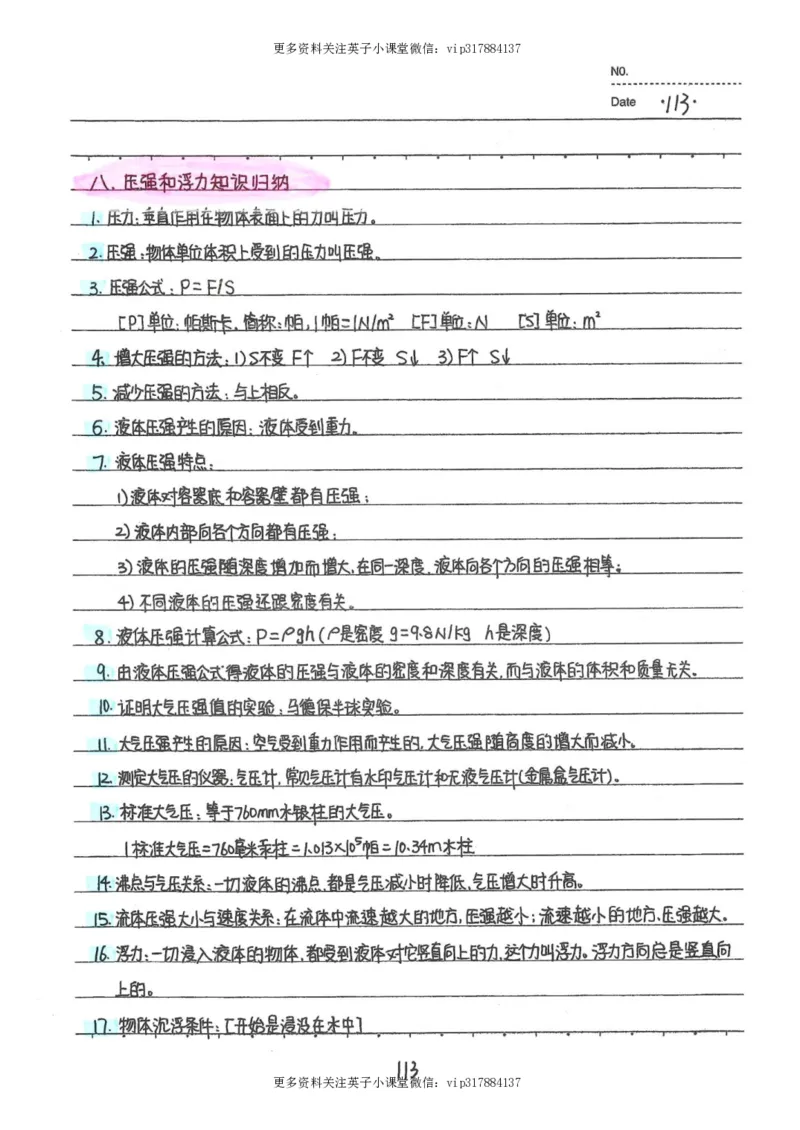 更多资料关注英子小课堂微信：vip317884137
NO.
Date ·113·
八. 压强和浮力知识归纳
1. 压力：垂直作用在物体表面上的力叫压力。
2. 压强：物体单位体积上受到的压力叫压强。
3. 压强公式：P=F/S
[P]单位：帕斯卡，简称：帕，1帕=1N/m² [F]单位：N [S]单位：m²
4. 增大压强的方法：1)S不变 F↑ 2)F不变 S↓ 3)F↑ S↓
5. 减少压强的方法：与上相反。
6. 液体压强产生的原因：液体受到重力。
7. 液体压强特点：
1)液体对容器底和容器壁都有压强；
2)液体内部向各个方向都有压强；
3)液体的压强随深度增加而增大，在同一深度，液体向各个方向的压强相等；
4)不同液体的压强还跟密度有关。
8. 液体压强计算公式：P=ρgh(ρ是密度 g=9.8N/kg h是深度)
9. 由液体压强公式得液体的压强与液体的密度和深度有关，而与液体的体积和质量无关。
10. 证明大气压强值的实验：马德保半球实验。
11. 大气压强产生的原因：空气受到重力作用而产生的，大气压强随高度的增大而减小。
12. 测定大气压的仪器：气压计，常见气压计有水印气压计和无液气压计(金属盒气压计)。
13. 标准大气压：等于760mm水银柱的大气压。
1标准大气压=760毫米汞柱=1.013×10⁵帕=10.34m水柱
14. 沸点与气压关系：一切液体的沸点，都是气压减小时降低，气压增大时升高。
15. 流体压强大小与速度关系：在流体中流速越大的地方，压强越小；流速越小的地方，压强越大。
16. 浮力：一切浸入液体的物体，都受到液体对它竖直向上的力，这个力叫浮力。浮力方向总是竖直向
上的。
17. 物体沉浮条件：[开始是浸没在水中]
113
更多资料关注英子小课堂微信：vip317884137